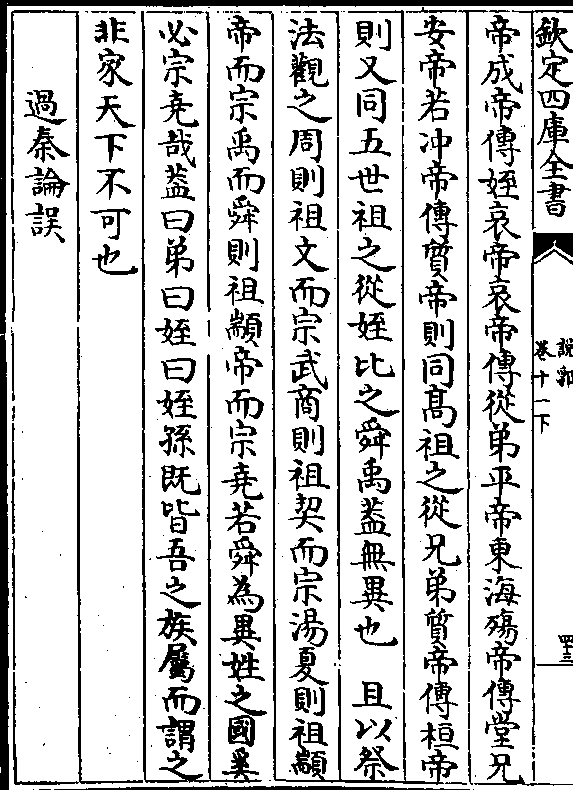 欽定四庫全書
說郛
卷十一下
四十三
帝成帝傳姪哀帝哀帝傳從弟平帝東海殤帝傳堂兄
安帝若冲帝傳質帝則同髙祖之從兄弟質帝傳桓帝
則又同五世祖之從姪比之舜禹葢無異也　且以祭
法觀之周則祖文而宗武商則祖契而宗湯夏則祖顓
帝而宗禹而舜則祖顓帝而宗堯若舜為異姓之國奚
必宗堯哉葢曰弟曰姪曰姪孫既皆吾之族屬而謂之
非家天下不可也
過秦論誤